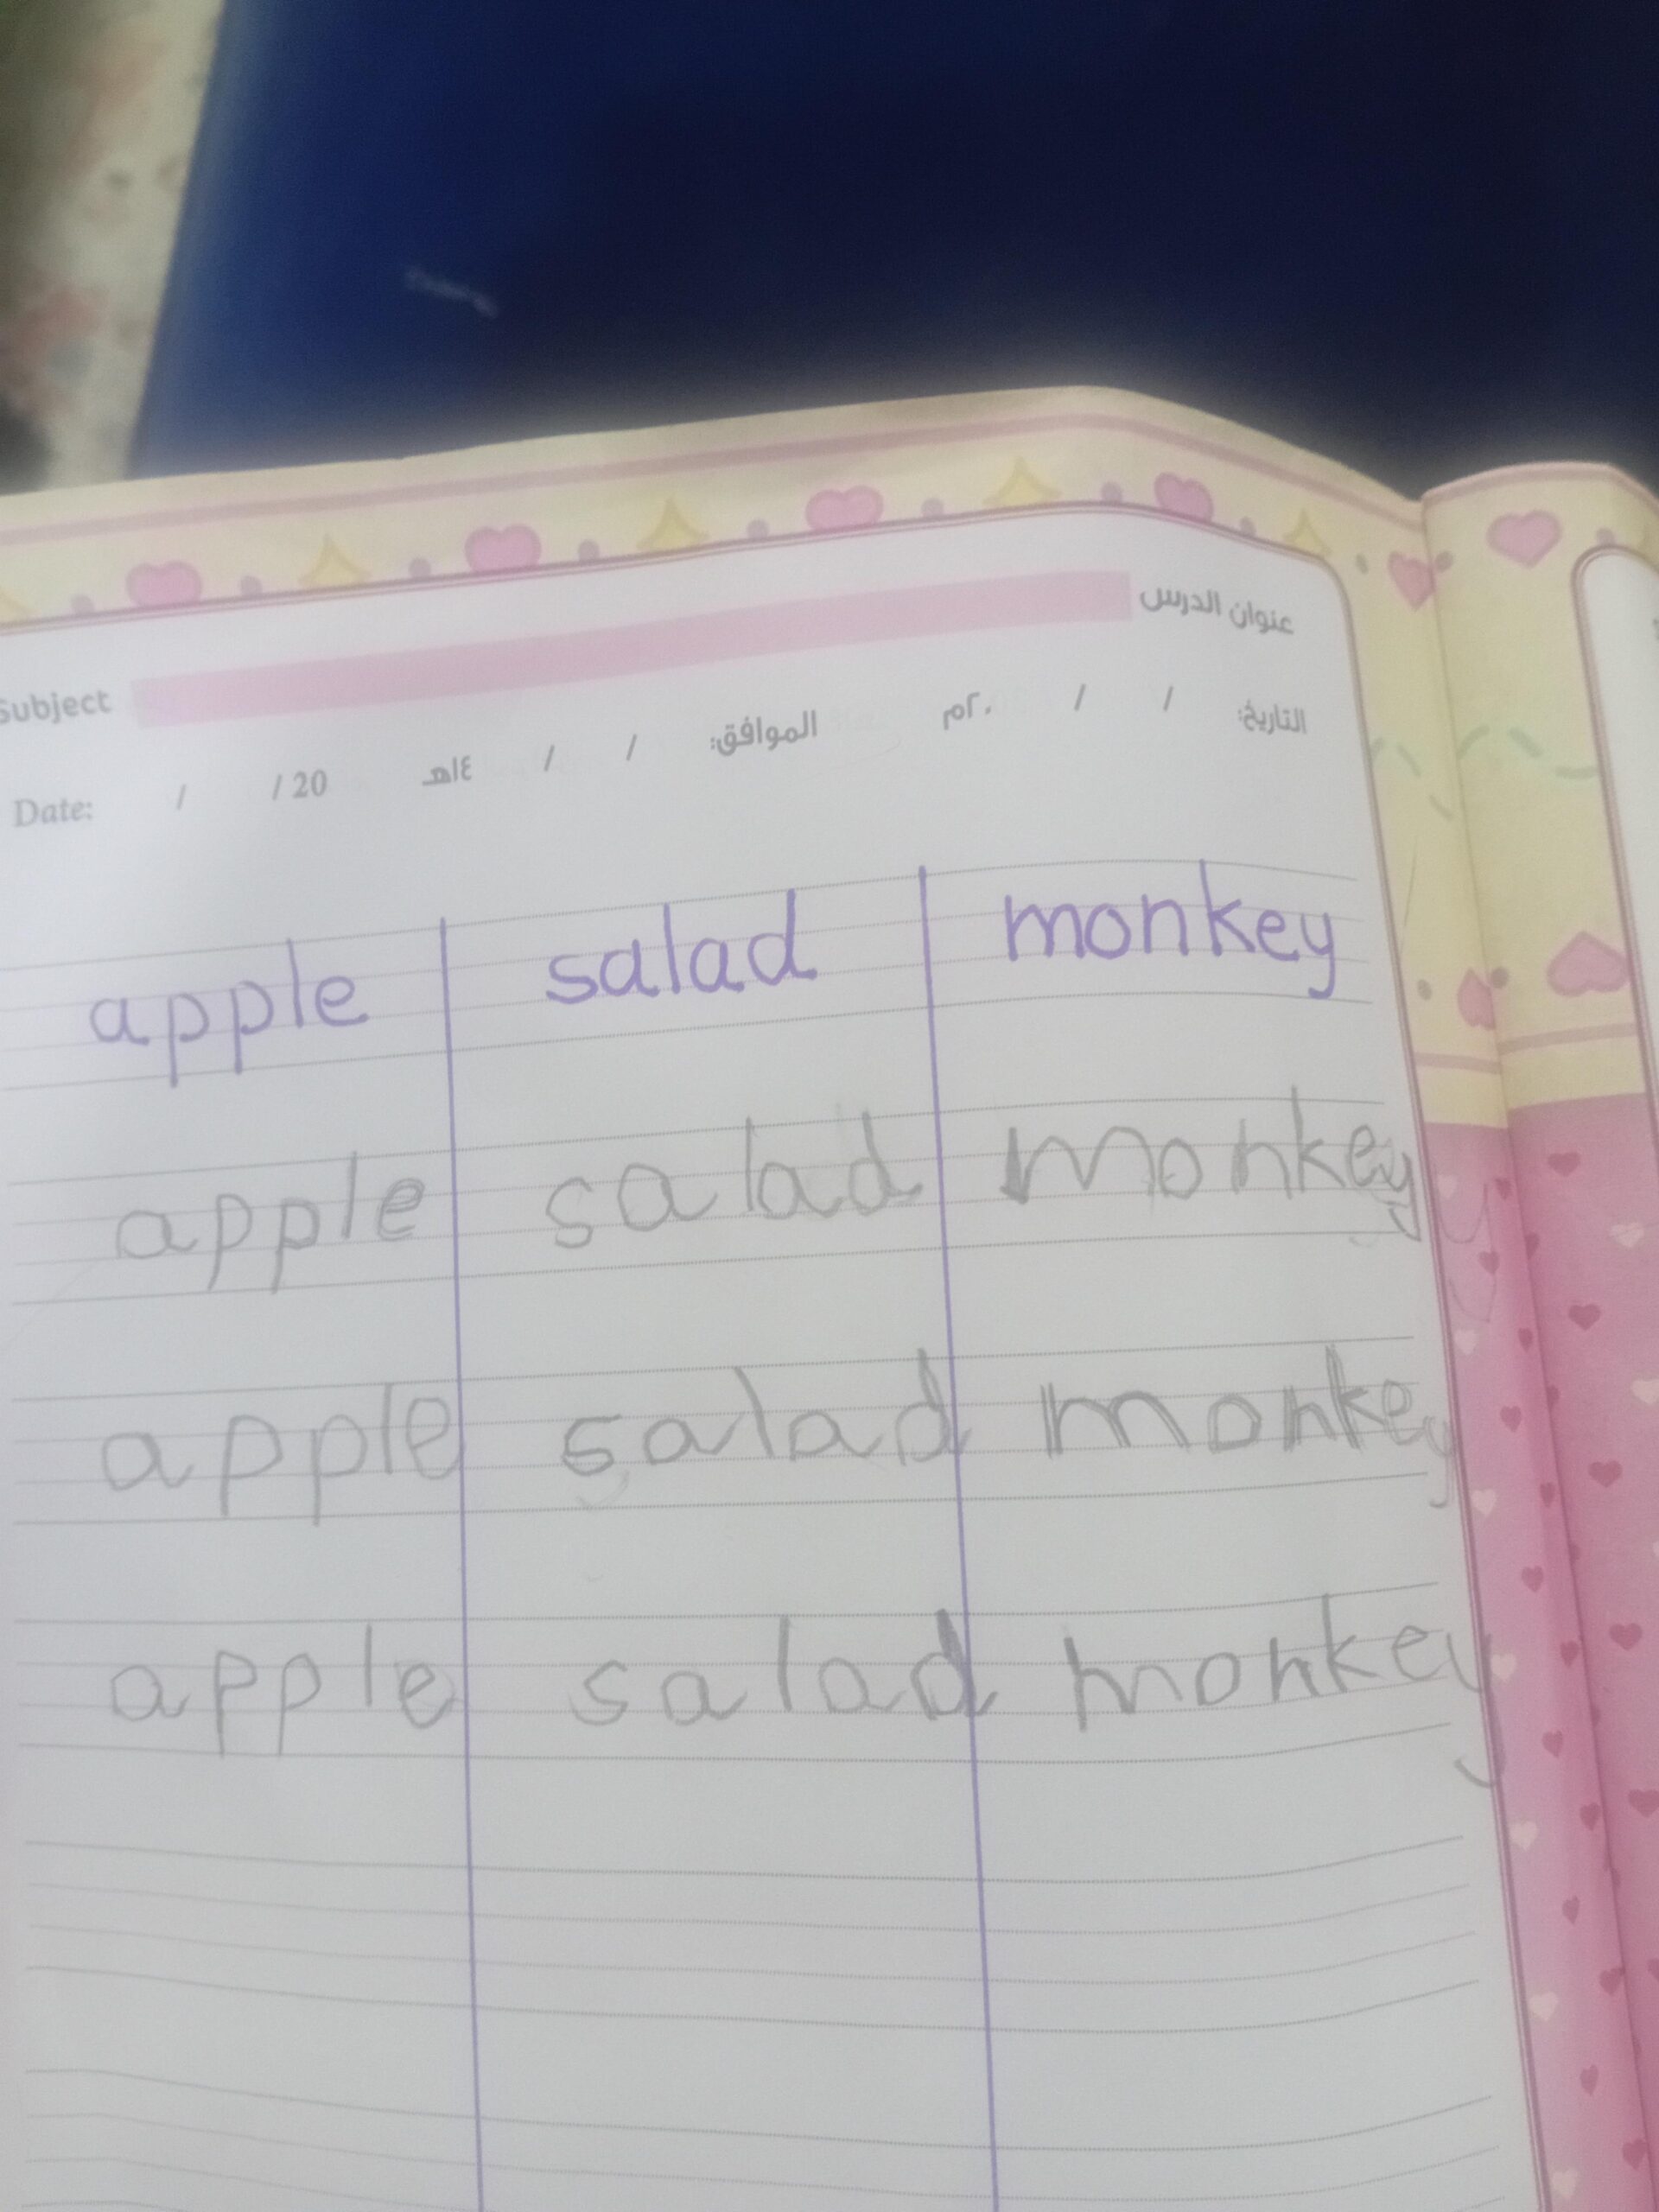 Subject عنوان الدرس
Date: / / 20 ١٤هـ / / الموافق: ٢٠م / / التاريخ:
apple salad monkey
apple salad monkey
apple salad monkey
apple salad monkey